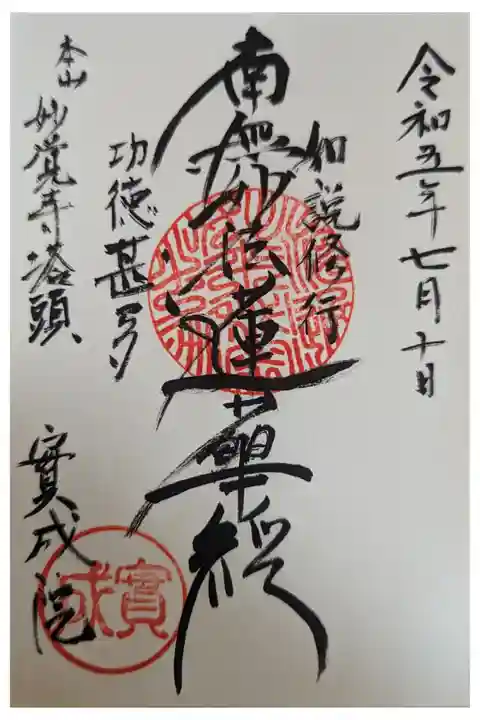 令和五年七月十日
如説修行
南無妙法蓮華経
功徳甚多
本山 妙覚寺塔頭
實成院
實成